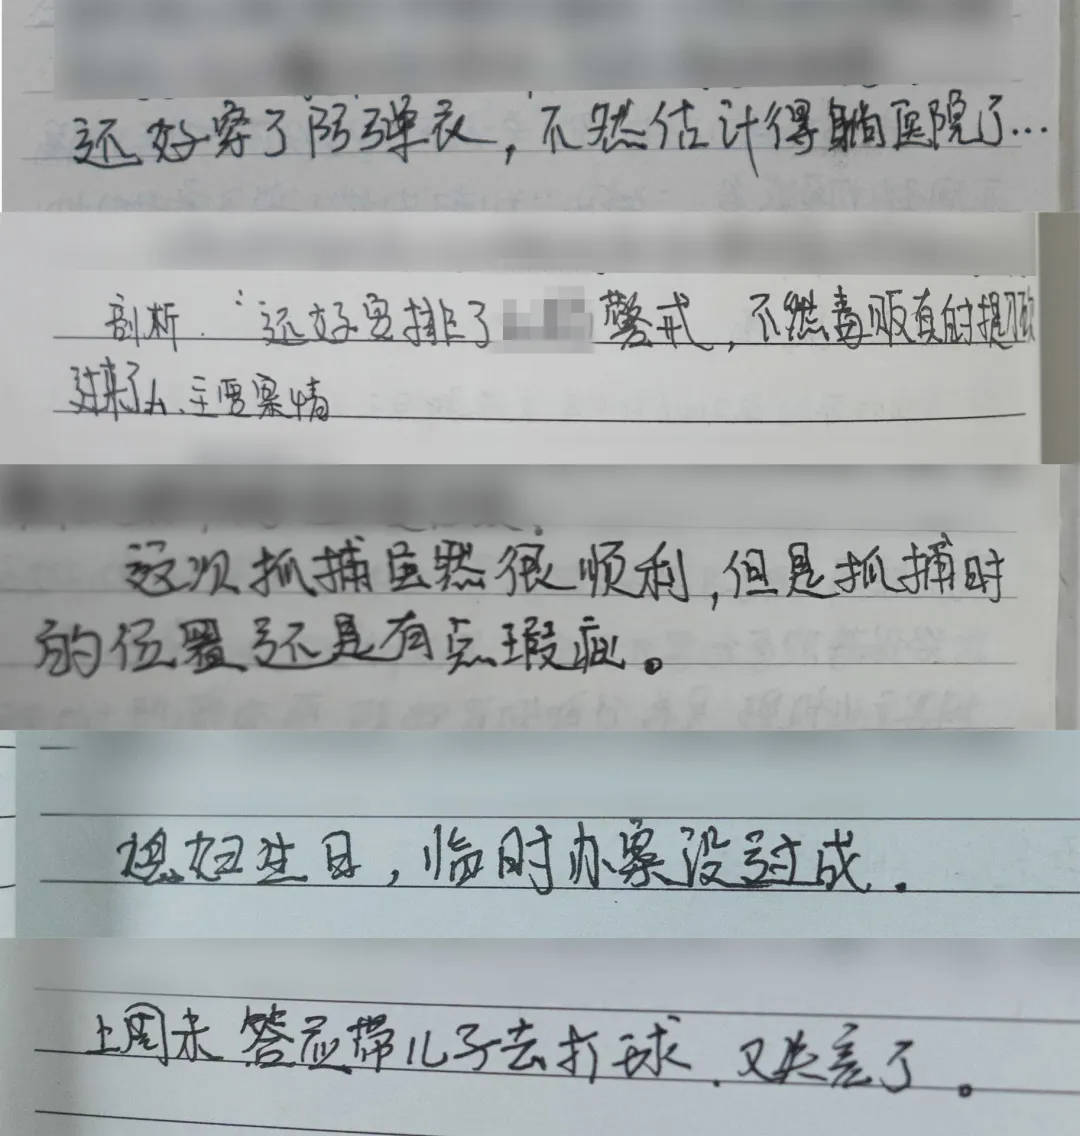 还好穿了防弹衣，不然估计得躺医院了…
剖析．“还好安排了 警戒，不然毒贩真的提
过来了、主要案情
这次抓捕虽然很顺利，但是抓捕时
的位置还是有点瑕疵。
媳妇生日，临时办案没过成．
上周末答应带儿子去打球．又失言了。